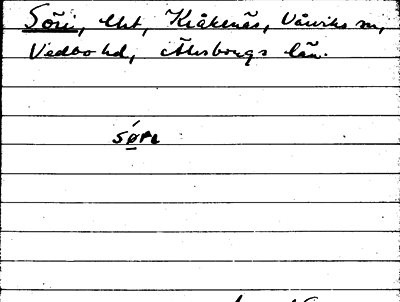 Söri, Kråkenäs, Vårviks sn,
Vedbo hd, Älvsborgs län.
sørɩ